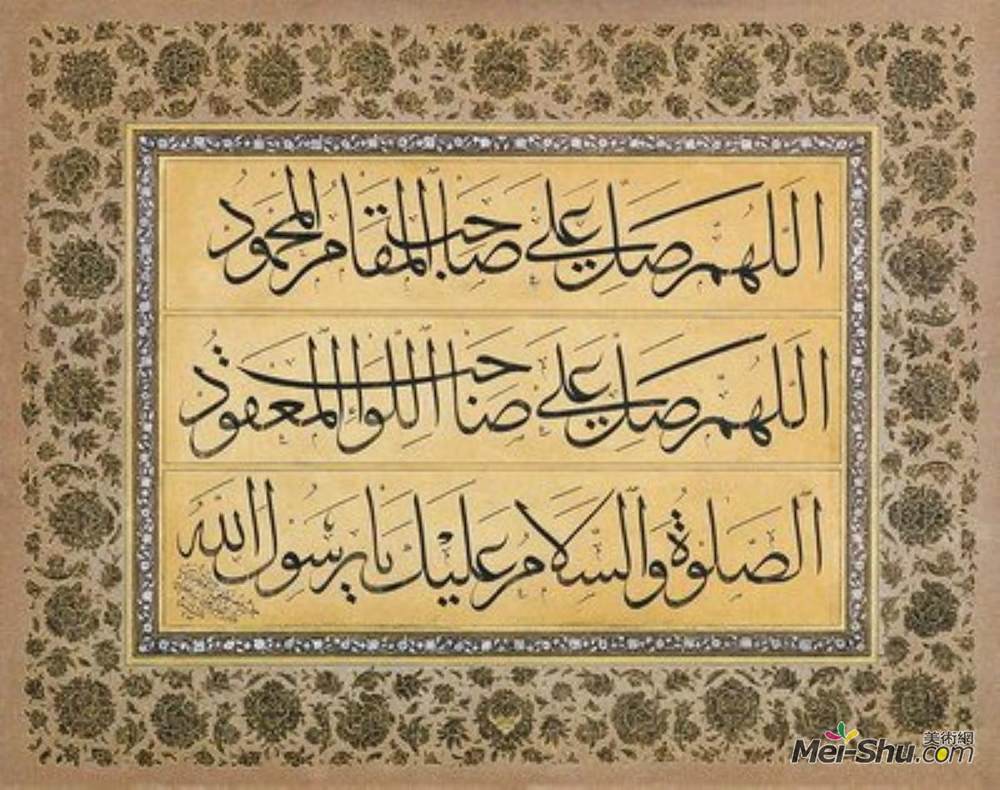 اللهم صل على صاحب المقام المحمود
اللهم صل على صاحب اللواء المعقود
الصلوة والسلام عليك يا رسول الله
美術網
Mei-Shu.com